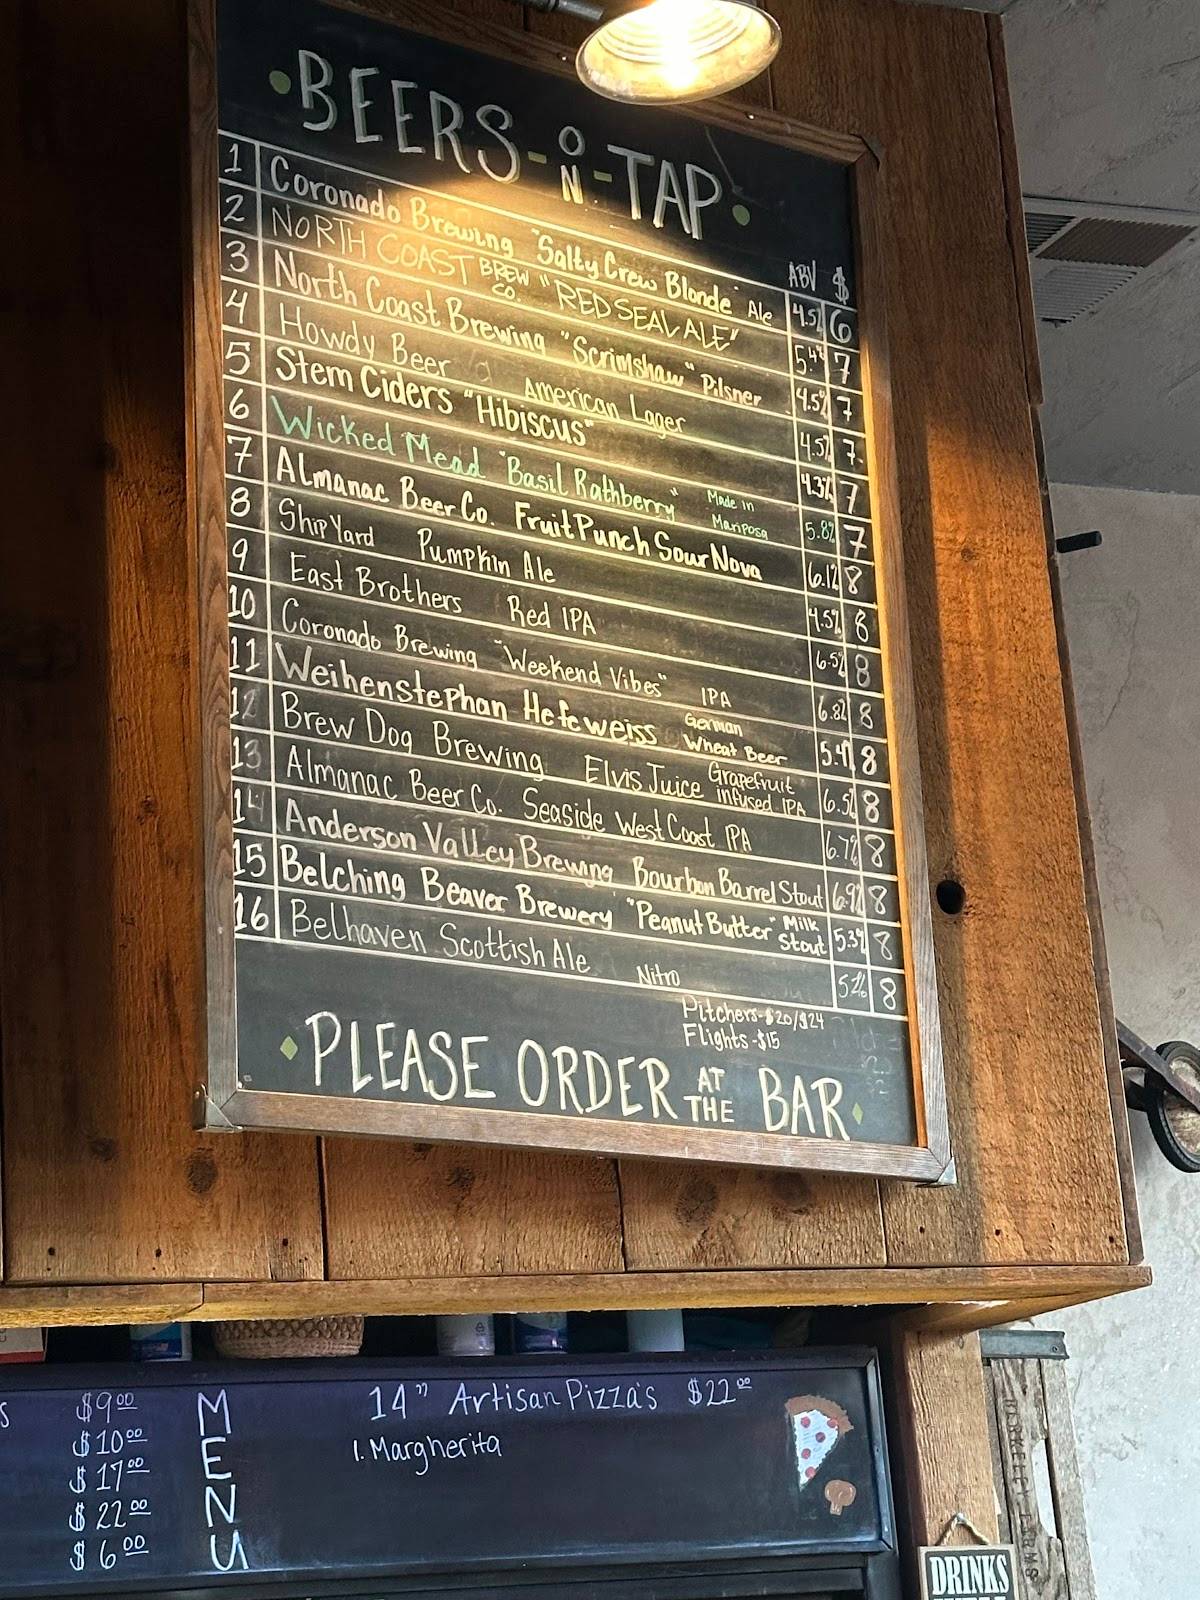 BEERS-ON-TAP
ABV $
1 Coronado Brewing "Salty Crew Blonde" Ale 4.5% 6
2 NORTH COAST BREW CO. "RED SEAL ALE" 5.4% 7
3 North Coast Brewing "Scrimshaw" Pilsner 4.5% 7
4 Howdy Beer American Lager 4.5% 7.
5 Stem Ciders "Hibiscus" 4.3% 7
6 Wicked Mead "Basil Rathberry" Made in Mariposa 5.8% 7
7 Almanac Beer Co. Fruit Punch Sour Nova 6.1% 8
8 ShipYard Pumpkin Ale 4.5% 8
9 East Brothers Red IPA 6.5% 8
10 Coronado Brewing "Weekend Vibes" IPA 6.8% 8
11 Weihenstephan Hefeweiss German Wheat Beer 5.4% 8
12 Brew Dog Brewing Elvis Juice Grapefruit infused IPA 6.5% 8
13 Almanac Beer Co. Seaside West Coast IPA 6.7% 8
14 Anderson Valley Brewing Bourbon Barrel Stout 6.9% 8
15 Belching Beaver Brewery "Peanut Butter" Milk Stout 5.3% 8
16 Belhaven Scottish Ale Nitro 5.2% 8
Pitchers-$20/$24
Flights-$15
PLEASE ORDER AT THE BAR
$9.00
$10.00
$17.00
$22.00
$6.00
MENU
14" Artisan Pizza's $22.00
1. Margherita
DRINKS